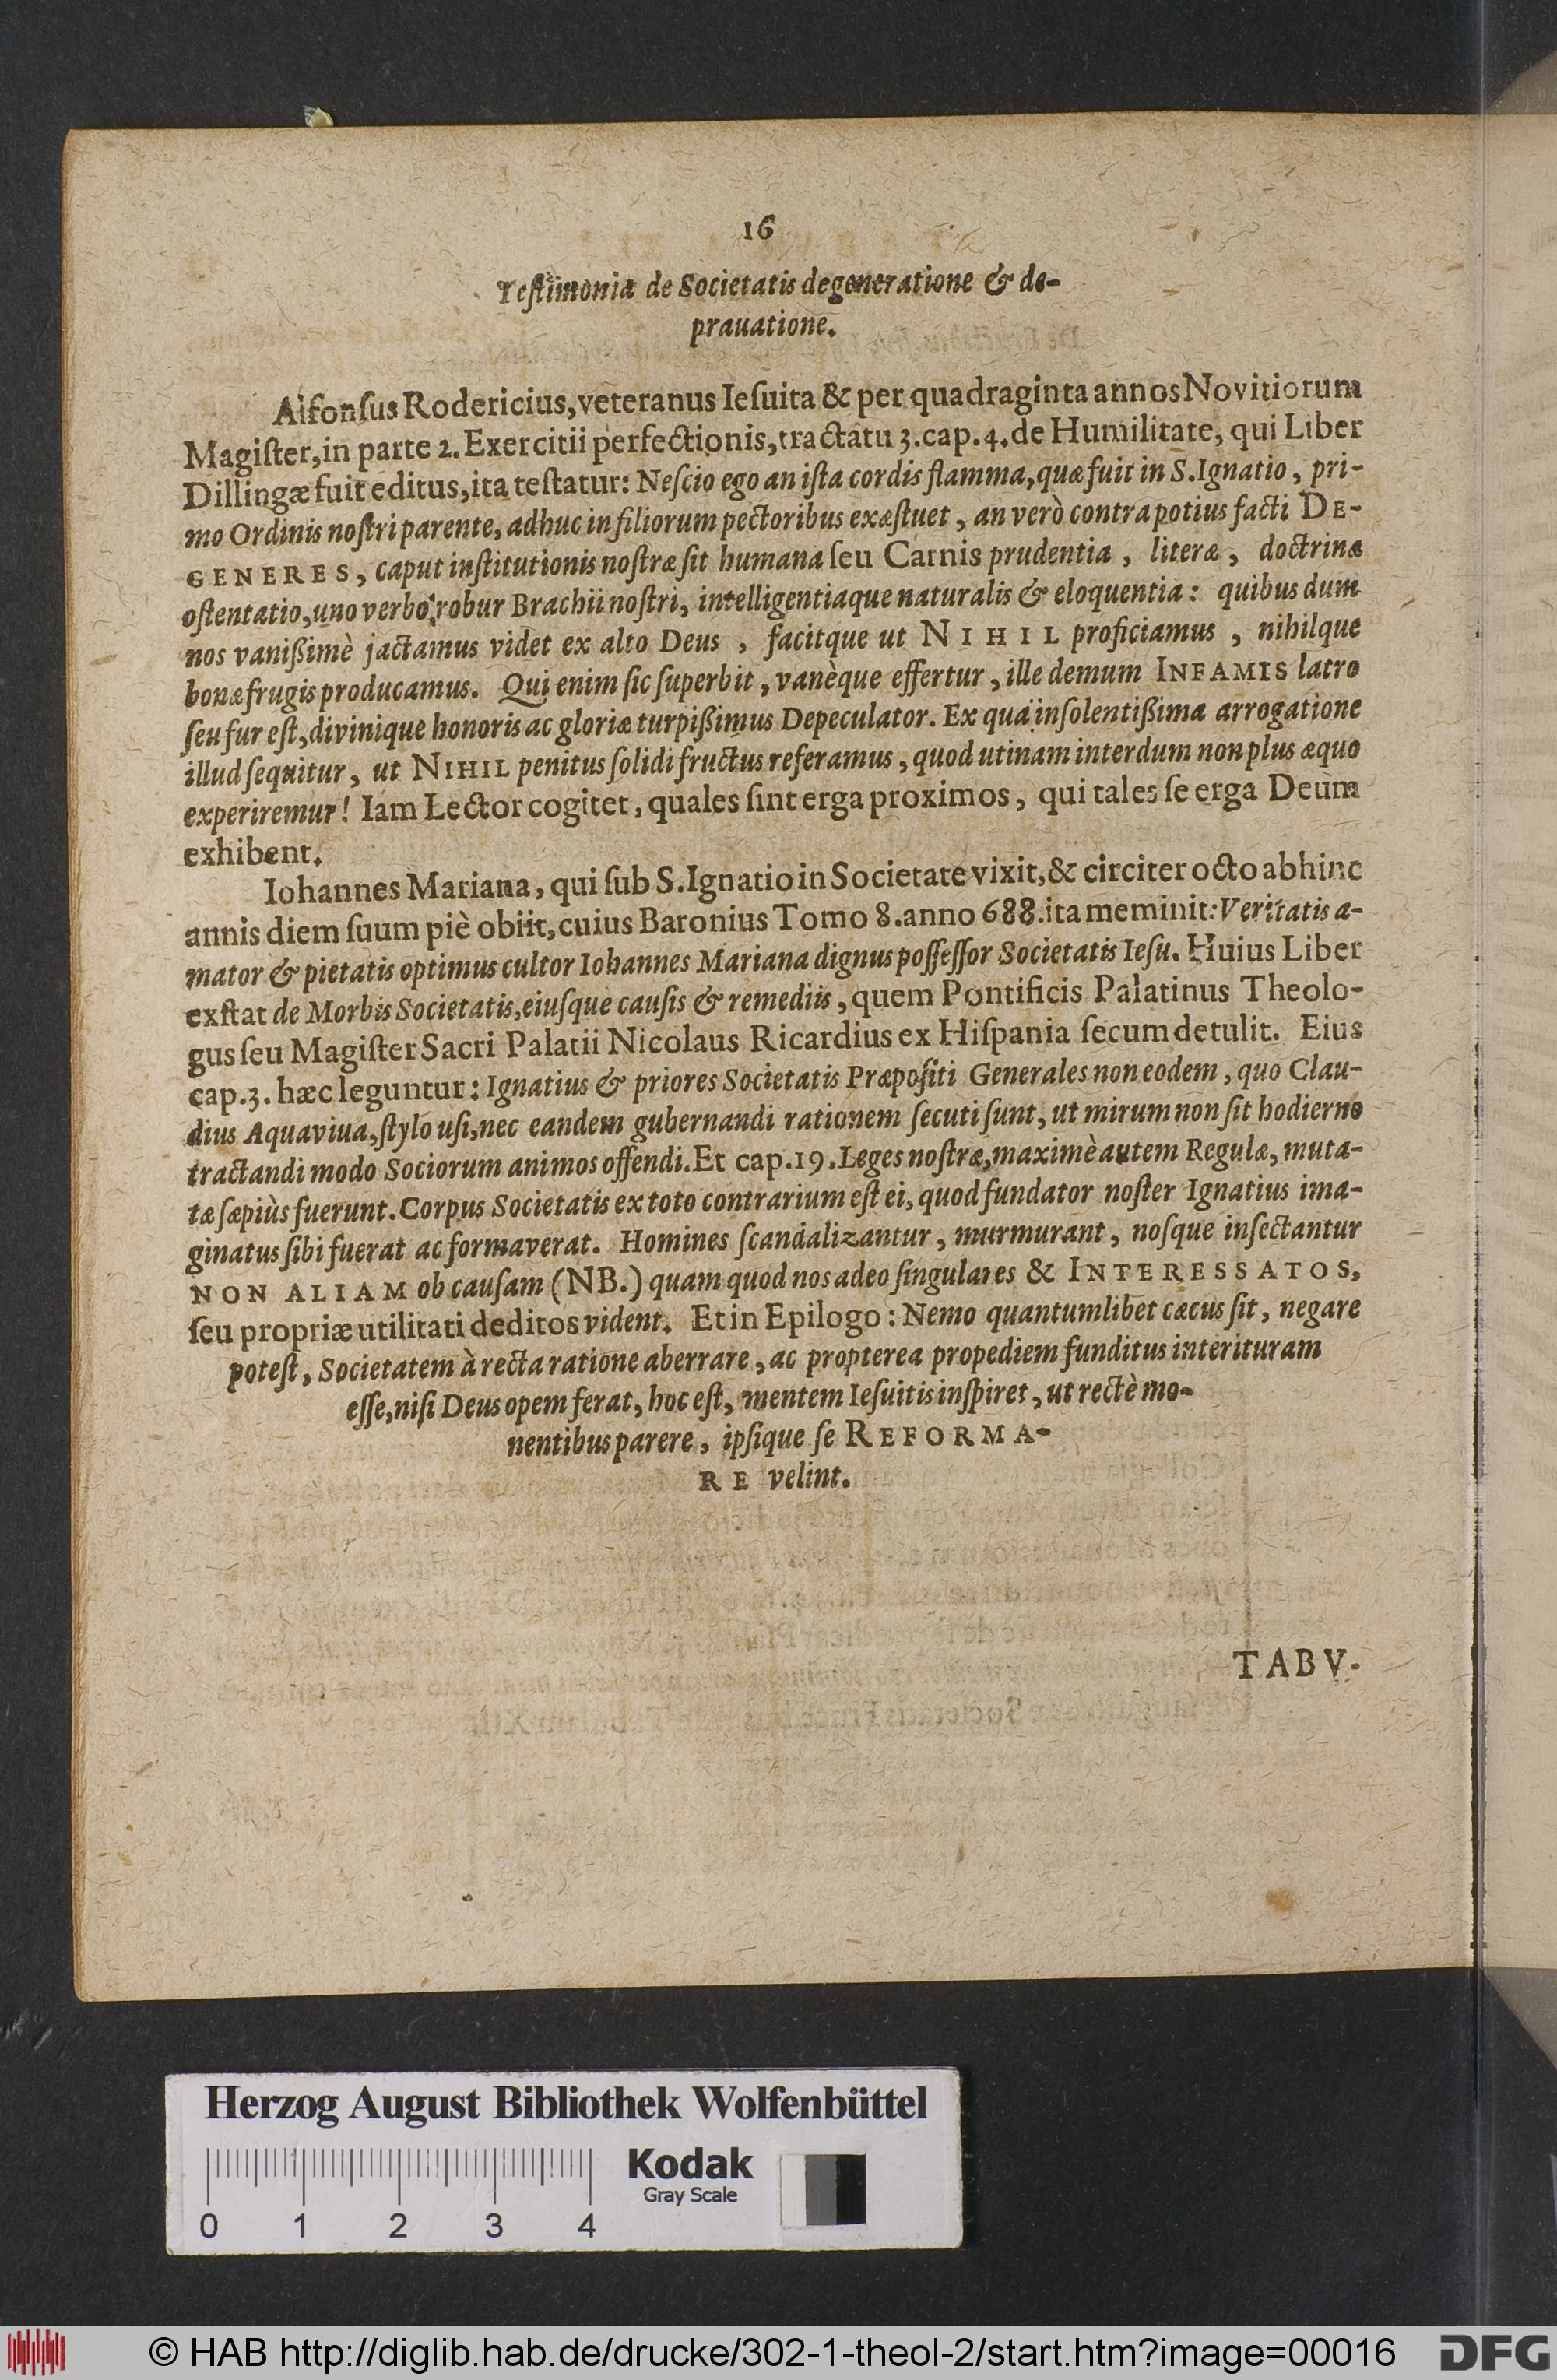 16
Teſtimonia de Societatis degeneratione & de-
prauatione.
Alfonſus Rodericius, veteranus Ieſuita & per quadraginta annos Novitiorum
Magiſter, in parte 2. Exercitii perfectionis, tractatu 3. cap. 4. de Humilitate, qui Liber
Dillingæ fuit editus, ita teſtatur: Neſcio ego an iſta cordis flamma, quæ fuit in S. Ignatio, pri-
mo Ordinis noſtri parente, adhuc in filiorum pectoribus exæſtuet, an verò contra potius facti DE-
GENERES, caput inſtitutionis noſtræ ſit humana ſeu Carnis prudentia, literæ, doctrinæ
oſtentatio, uno verbo: robur Brachii noſtri, intelligentiaque naturalis & eloquentia: quibus dum
nos vanißimè jactamus videt ex alto Deus, facitque ut NIHIL proficiamus, nihilque
bonæ frugis producamus. Qui enim ſic ſuperbit, vanèque effertur, ille demum INFAMIS latro
ſeu fur eſt, divinique honoris ac gloriæ turpißimus Depeculator. Ex quâ inſolentißima arrogatione
illud ſequitur, ut NIHIL penitus ſolidi fructus referamus, quod utinam interdum non plus æquo
experiremur! Iam Lector cogitet, quales ſint erga proximos, qui tales ſe erga Deum
exhibent.
Iohannes Mariana, qui ſub S. Ignatio in Societate vixit, & circiter octo abhinc
annis diem ſuum piè obiit, cuius Baronius Tomo 8. anno 688. ita meminit: Veritatis a-
mator & pietatis optimus cultor Iohannes Mariana dignus poſſeſſor Societatis Ieſu. Huius Liber
exſtat de Morbis Societatis, eiuſque cauſis & remediis, quem Pontificis Palatinus Theolo-
gus ſeu Magiſter Sacri Palatii Nicolaus Ricardius ex Hiſpania ſecum detulit. Eius
cap. 3. hæc leguntur: Ignatius & priores Societatis Præpoſiti Generales non eodem, quo Clau-
dius Aquaviua, ſtylo uſi, nec eandem gubernandi rationem ſecuti ſunt, ut mirum non ſit hodierno
tractandi modo Sociorum animos offendi. Et cap. 19. Leges noſtræ, maximè autem Regulæ, muta-
tæ ſæpiùs fuerunt. Corpus Societatis ex toto contrarium eſt ei, quod fundator noſter Ignatius ima-
ginatus ſibi fuerat ac formaverat. Homines ſcandalizantur, murmurant, noſque inſectantur
NON ALIAM ob cauſam (NB.) quam quod nos adeo ſingulares & INTERESSATOS,
ſeu propriæ utilitati deditos vident. Et in Epilogo: Nemo quantumlibet cæcus ſit, negare
poteſt, Societatem à recta ratione aberrare, ac propterea propediem funditus interituram
eſſe, niſi Deus opem ferat, hoc eſt, mentem Ieſuitis inſpiret, ut rectè mo-
nentibus parere, ipſique ſe REFORMA-
RE velint.
TABV-
Herzog August Bibliothek Wolfenbüttel
Kodak
Gray Scale
0 1 2 3 4
© HAB http://diglib.hab.de/drucke/302-1-theol-2/start.htm?image=00016
DFG